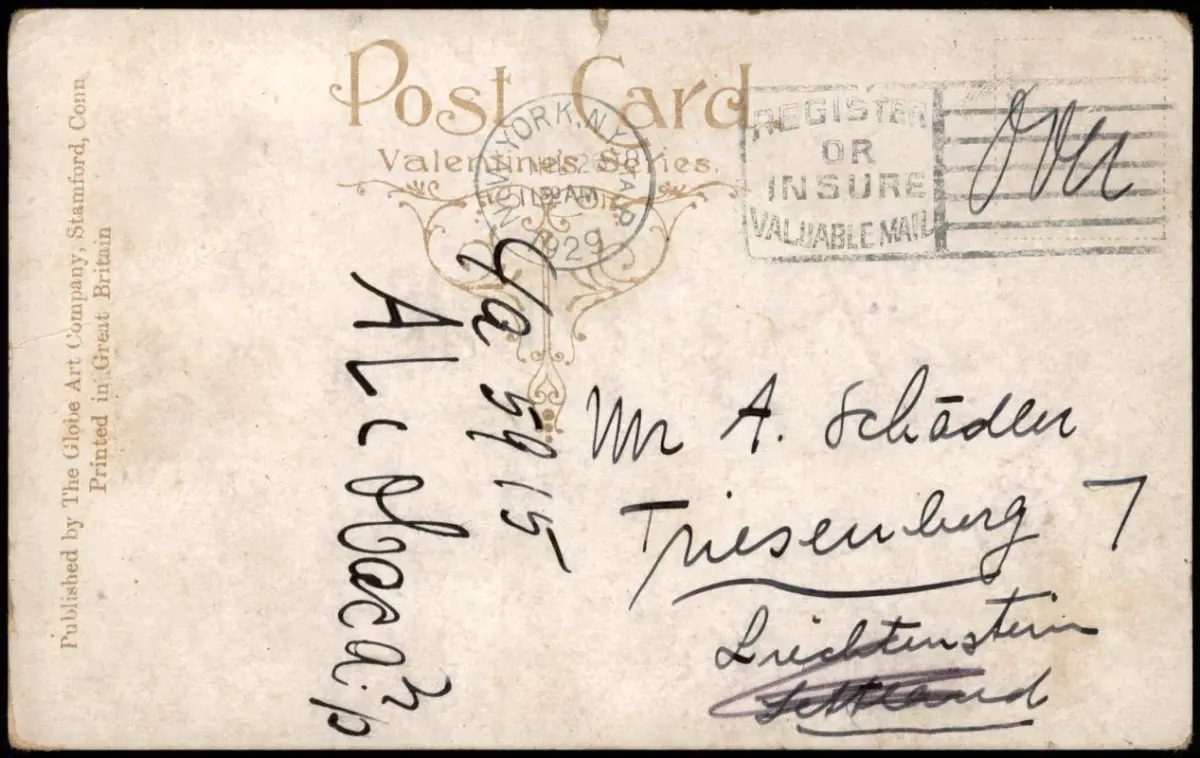 Post Card
Valentines Series.
Published by The Globe Art Company, Stamford, Conn
Printed in Great Britain
NEW YORK, N.Y.
11 AM
1929
REGISTER
OR
INSURE
VALUABLE MAIL
Over
5915
Mr A. Schädler
Triesenberg 7
Liechtenstein